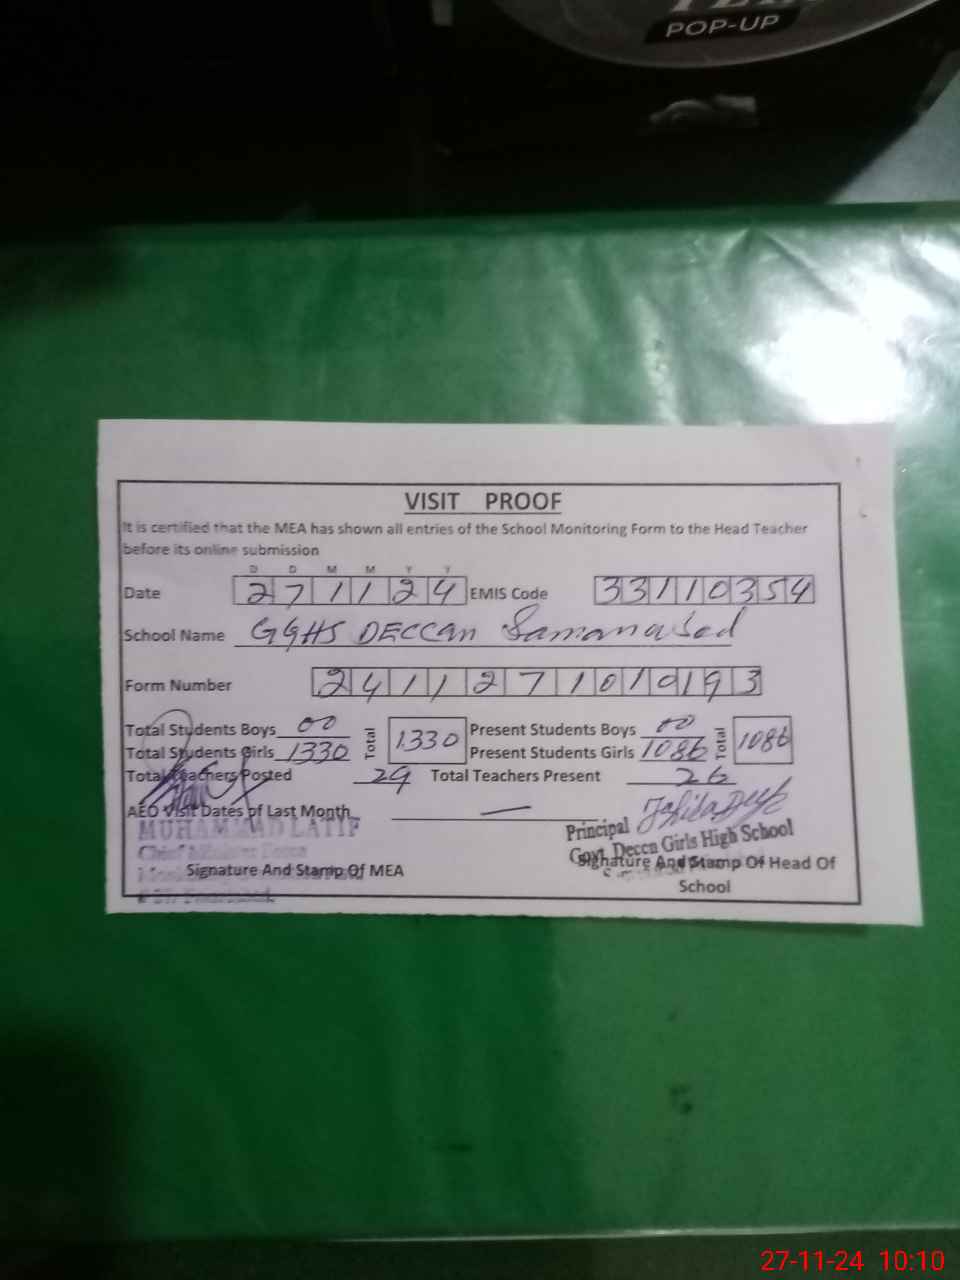 POP-UP
VISIT PROOF
It is certified that the MEA has shown all entries of the School Monitoring Form to the Head Teacher
before its online submission
D D M M Y Y
Date 271124 EMIS Code 33110354
School Name GGHS DECCAN Samanabad
Form Number 2411271010193
Total Students Boys 00 Total 1330 Present Students Boys 00 Total 1086
Total Students Girls 1330 Present Students Girls 1086
Total Teachers Posted 29 Total Teachers Present 26
AEO Visit Dates of Last Month —
MUHAMMAD LATIF
Principal
Govt. Deccn Girls High School
Chief
Signature And Stamp Of MEA
Signature And Stamp Of Head Of
School
27-11-24 10:10